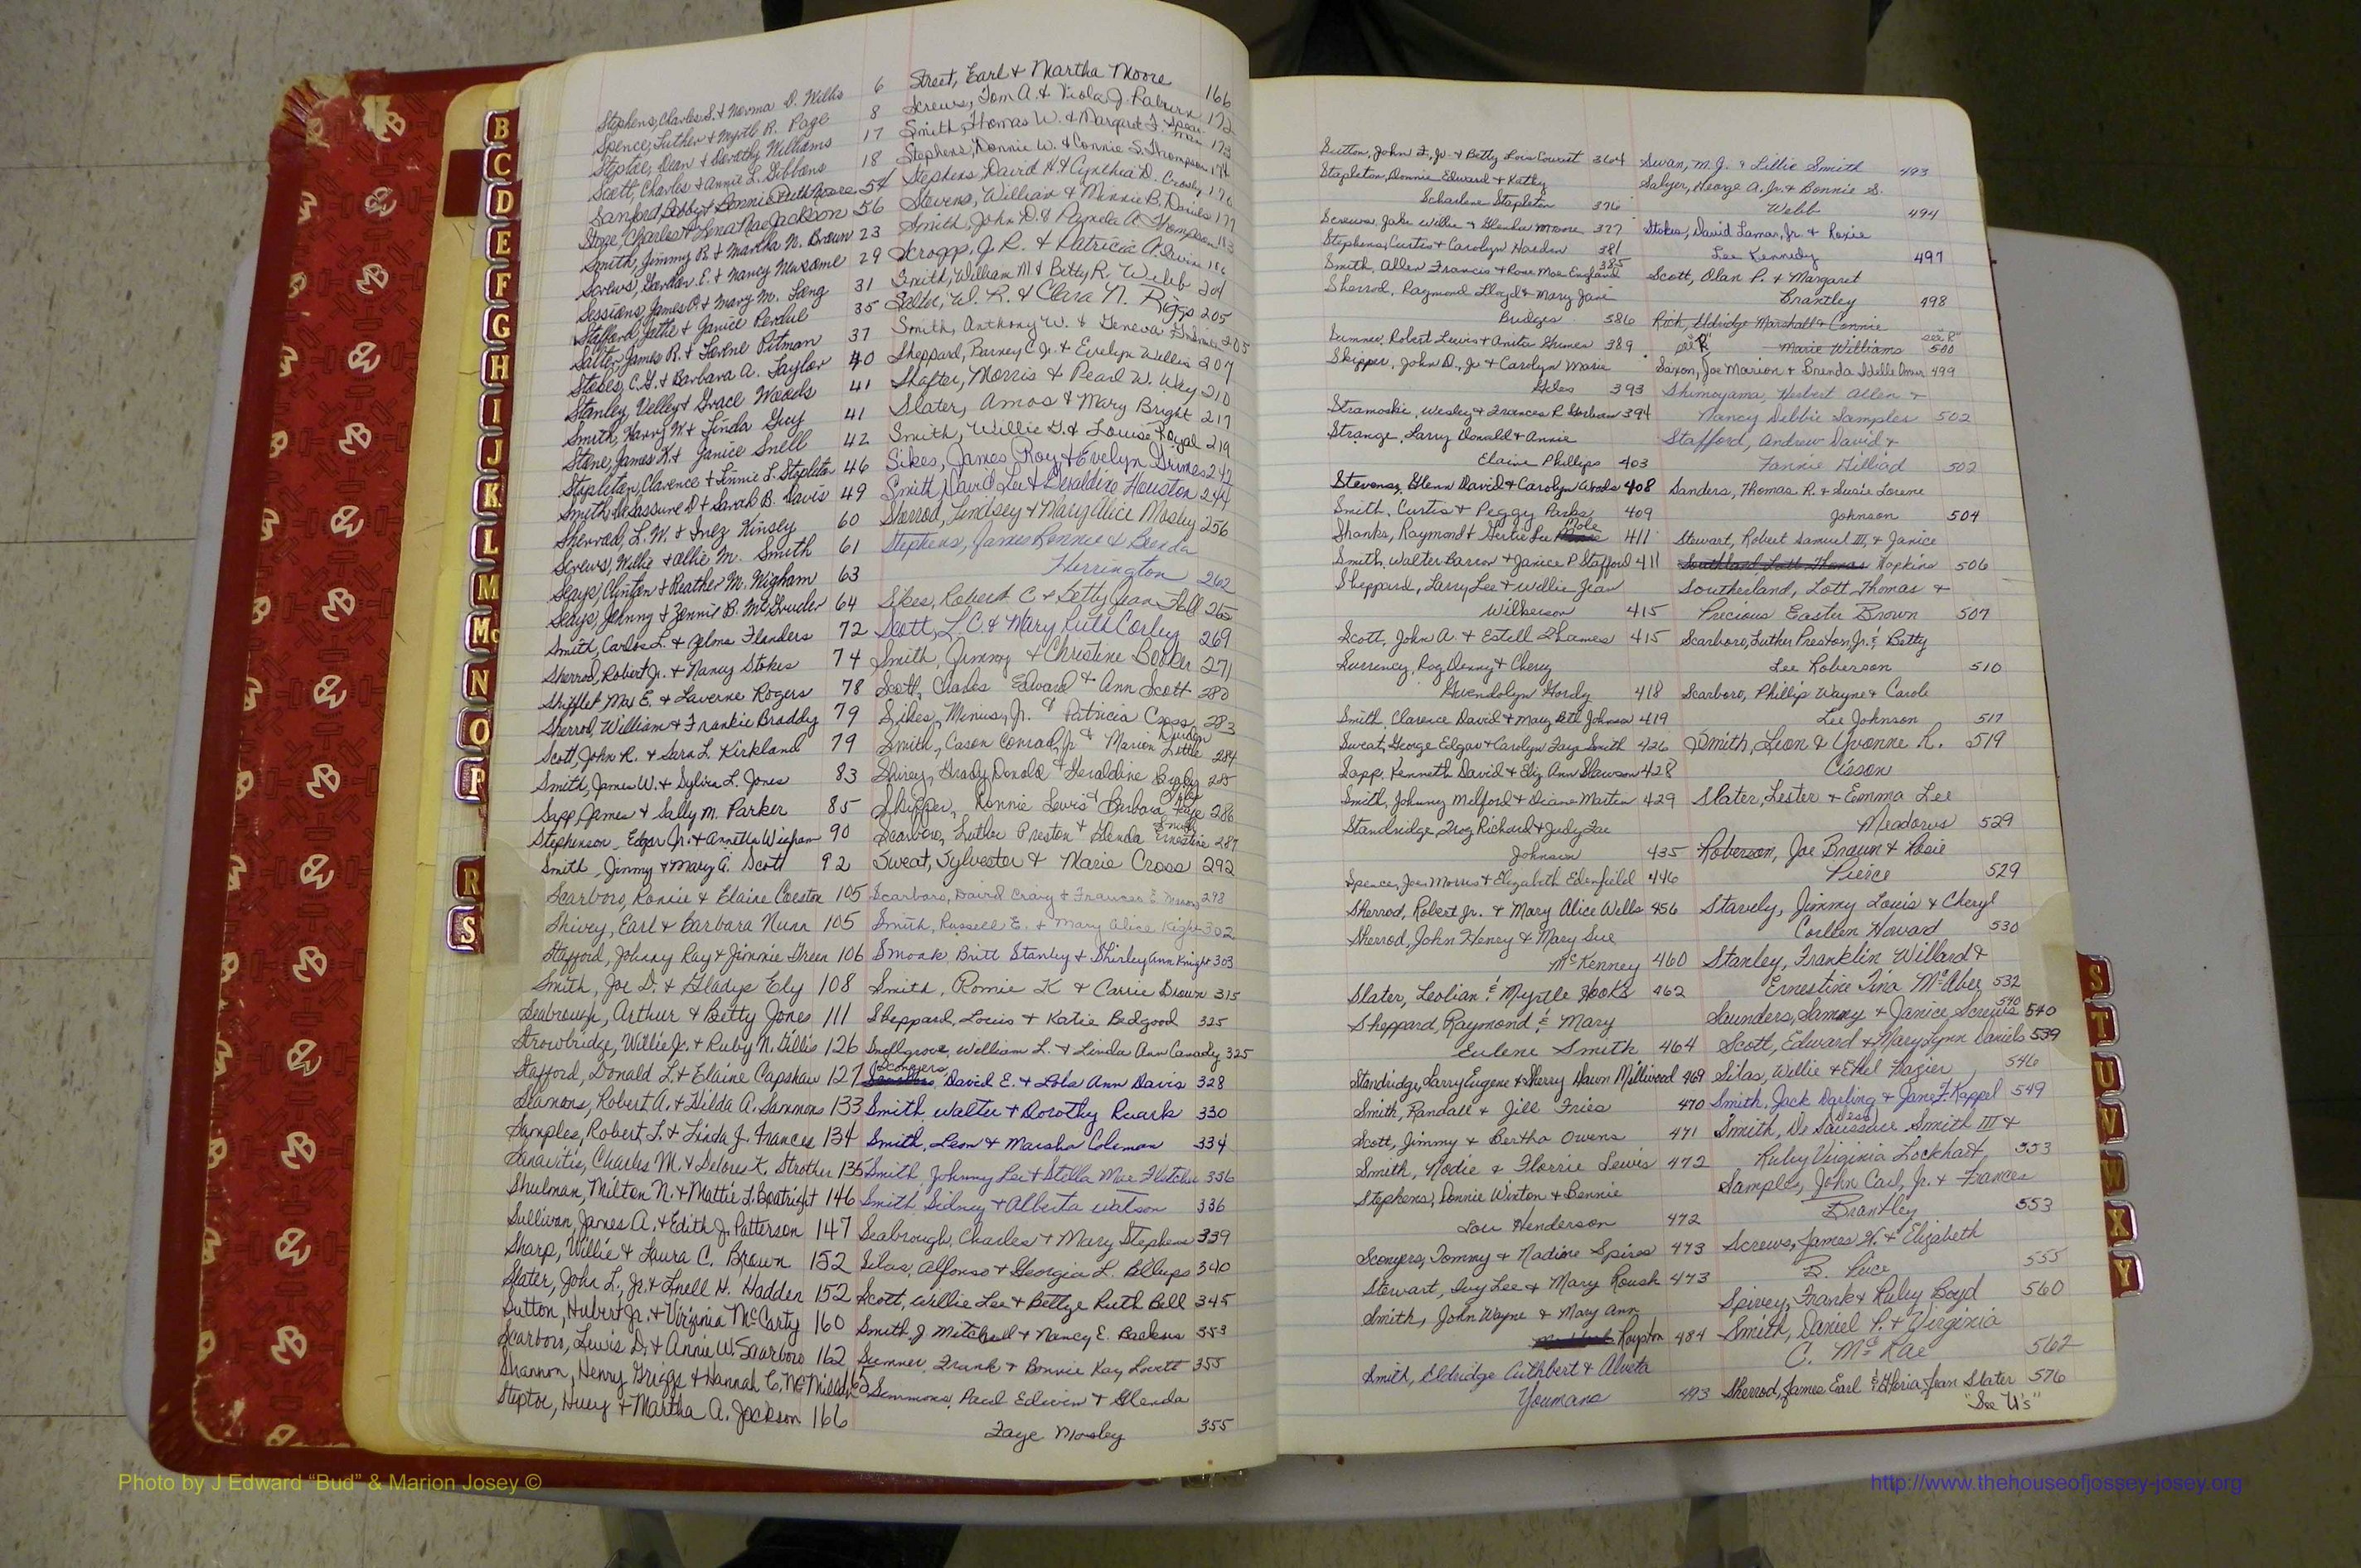 B
C
D
E
F
G
H
I
J
K
L
M
Mc
N
O
P
R
S
Stephens, Charles S. & Norma D. Willis 6
Spence, Luther & Myrtle R. Page 8
Steptoe, Dean & Dorothy Williams 17
Scott, Charles & Annie L. Gibbons 18
Sanford, Bobby & Bonnie Ruth 54
Stone, Charles & Lena Mae Jackson 56
Smith, Jimmy R. & Martha N. Brown 23
Screws, Gordon E. & Nancy Newsome 29
Sessions, James C. & Mary M. Lang 31
Stafford, & Janice Perdue 35
Salter, James R. & Pitman 37
Stokes, C.G. & Barbara A. Taylor 40
Stanley, Velley & Grace Woods 41
Smith, Harry W. & Linda Guy 41
Stone, James K. & Janice Snell 42
Stapleton, Clarence & Linnie L. Stapleton 46
Smith, DeSassure D. & Sarah B. Davis 49
Sherrod, L.W. & Inez Kinsey 60
Screws, Willie & Allie M. Smith 61
Seays, Clinton & Heather M. Wigham 63
Seays, Johnny & Fannie B. McGruder 64
Smith, Carlos L. & Zelma Flanders 72
Sherrod, Robert Jr. & Nancy Stokes 74
Shifflet, E. & Laverne Rogers 78
Sherrod, William & Frankie Braddy 79
Scott, John R. & Sara L. Kirkland 79
Smith, James W. & Sylvia L. Jones 83
Sapp, James & Sally M. Parker 85
Stephenson, Edgar Jr. & Annetta Wigham 90
Smith, Jimmy & Mary A. Scott 92
Scarboro, Ronnie & Elaine 105
Shivey, Earl & Barbara Nunn 105
Stafford, Johnny Ray & Jimmie Green 106
Smith, Joe D. & Gladys Ely 108
Seabrough, Arthur & Betty Jones 111
Strowbridge, Willie Jr. & Ruby N. Gillis 126
Stafford, Donald L. & Elaine Capshaw 127
Seamons, Robert A. & Hilda A. Sammons 133
Samples, Robert L. & Linda J. Frances 134
Charles M. & Delores K. Strother 135
Shulman, Milton N. & Mattie L. Boatright 146
Sullivan, James A. & Edith J. Patterson 147
Sharp, Willie & Laura C. Brown 152
Slater, John L., Jr. & Snell H. Hadden 152
Sutton, Hubert Jr. & Virginia McCarty 160
Scarboro, Lewis D. & Annie W. Scarboro 162
Shannon, Henry Griggs & Hannah C. McMillan 165
Steptoe, Huey & Martha A. Jackson 166
Street, Earl & Martha Moore 166
Screws, Tom A. & Viola J. Raburn 172
Smith, Thomas W. & Margaret F. Spearman 173
Stephens, Donnie W. & Connie S. Thompson 174
Stephens, David H. & Cynthia D. Crosby 176
Stevens, William & Minnie B. Daniels 177
Smith, John D. & A. Thompson 183
Scroggs, J.R. & Patricia A. 186
Smith, William M. & Betty R. Webb 204
Salter, W.R. & Clara N. Riggs 205
Smith, Anthony W. & Geneva 205
Sheppard, Barney C. Jr. & Evelyn Willis 207
Shafter, Morris & Pearl W. Way 210
Slater, Amos & Mary Bright 217
Smith, Willie G. & Louise Royal 219
Sikes, James Roy & Evelyn Grimes 242
Smith, David Lee & Geraldine Houston 244
Sherrod, Lindsey & Mary Alice Mosley 256
Stephens, James Ronnie & Brenda
Herrington 262
Sikes, Robert C. & Betty Jean Hall 265
Scott, L.C. & Mary Ruth Corley 269
Smith, Jimmy & Christine Booker 271
Scott, Charles Edward & Ann Scott 280
Sikes, Minius, Jr. & Patricia Cross 283
Smith, Cason Conrad, Jr. & Marion Durden Little 284
Shirey, Grady Donald & Geraldine 285
Skipper, Ronnie Lewis & Barbara Faye 286
Scarboro, Luther Preston & Glenda Ernestine Smith 287
Sweat, Sylvester & Marie Cross 292
Scarboro, David Craig & Frances E. 298
Smith, Russell E. & Mary Alice Kight 302
Smoak, Britt Stanley & Shirley Ann Knight 303
Smith, Romie K & Carrie Brown 315
Sheppard, Louis & Katie Bedgood 325
Snellgrove, William L. & Linda Ann Canady 325
Sconyers, David E. & Lola Ann Davis 328
Smith Walter & Dorothy Ruark 330
Smith, Leon & Marsha Coleman 334
Smith, Johnny Lee & Stella Mae Fletcher 336
Smith Sidney & Alberta Watson 336
Seabrough, Charles & Mary Stephens 339
Silas, Alfonso & Georgia L. Billups 340
Scott, Willie Lee & Bettye Ruth Bell 345
Smith, J. Mitchell & Nancy E. Backus 353
Sumner, Frank & Bonnie Kay Lovett 355
Simmons, Paul Edwin & Glenda
Faye Mosley 355
Sutton, John F., Jr. & Betty Lois 364
Stapleton, Donnie Edward & Kathy
Scharlene Stapleton 376
Screws, Jake Willie & Glenda Moore 377
Stephens, Curtis & Carolyn Harden 381
Smith, Allen Francis & Rose Mae England 385
Sherrod, Raymond Lloyd & Mary Jane
Bridges 386
Sumner, Robert Lewis & Anita Grimes 389
Skipper, John D., Jr. & Carolyn Marie
Giles 393
Stramoski, Wesley & Frances P. 394
Strange, Larry Donald & Annie
Elaine Phillips 403
Stevens, Glenn David & Carolyn Woods 408
Smith, Curtis & Peggy Parks 409
Shanks, Raymond & Gertie Lee Mole 411
Smith, Walter Barron & Janice P Stafford 411
Sheppard, Larry Lee & Willie Jean
Wilkerson 415
Scott, John A. & Estell Thames 415
Surrency, Roy Denny & Chery
Gwendolyn Hordy 418
Smith, Clarence David & Mary Beth Johnson 419
Sweat, George Edgar & Carolyn Faye Smith 426
Sapp, Kenneth David & Eliz. Ann Slawson 428
Smith, Johnny Melford & Diane Martin 429
Standridge, Troy Richard & Judy Fae
Johnson 435
Spence, Joe Morris & Elizabeth Edenfield 446
Sherrod, Robert Jr. & Mary Alice Wells 456
Sherrod, John Henry & Mary Sue
McKenney 460
Slater, Leolian & Myrtle Hooks 462
Sheppard, Raymond & Mary
Eulene Smith 464
Standridge, Larry Eugene & Sherry Dawn Millwood 469
Smith, Randall & Jill Fries 470
Scott, Jimmy & Bertha Owens 471
Smith, Nodie & Florrie Lewis 472
Stephens, Donnie Winton & Bennie
Lou Henderson 472
Sconyers, Tommy & Nadine Spires 473
Stewart, Ivy Lee & Mary Roush 473
Smith, John Wayne & Mary Ann
Royston 484
Smith, Eldridge Cuthbert & Alveta
Youmans 493
Swan, M.J. & Lillie Smith 493
Salyer, George A. Jr. & Bonnie S.
Webb 494
Stokes, David Lamar, Jr. & Roxie
Lee Kennedy 497
Scott, Olan P. & Margaret
Brantley 498
Rich, Eldridge Marshall & Connie
see "R" Marie Williams see "R" 500
Saxon, Joe Marion & Brenda Idelle 499
Shimoyama, Herbert Allen &
Nancy Debbie Samples 502
Stafford, Andrew David &
Fannie Gilliad 502
Sanders, Thomas R. & Susie Lorene
Johnson 504
Stewart, Robert Samuel III, & Janice
Southerland Lott Thomas Hopkins 506
Southerland, Lott Thomas &
Precious Easter Brown 507
Scarboro, Luther Preston, Jr. & Betty
Lee Roberson 510
Scarboro, Phillip Wayne & Carole
Lee Johnson 517
Smith, Leon & Yvonne R. 519
Cisson
Slater, Lester & Emma Lee
Meadows 529
Roberson, Joe Brown & Rosie
Pierce 529
Stavely, Jimmy Louis & Cheryl
Collen Howard 530
Stanley, Franklin Willard &
Ernestine Tina McAber 532
Saunders, Sammy & Janice Screws 540 540
Scott, Edward & Mary Lynn Daniels 539
Silas, Willie & Ethel Frazier 546
Smith, Jack Darling & Jane F. Kappel 549
Smith, De Saussure (Desa) Smith III &
Ruby Virginia Lockhart, 553
Samples, John Carl, Jr. & Frances
Brantley 553
Screws, James H. & Elizabeth
B. 555
Spivey, Frank & Ruby Boyd 560
Smith, Daniel P. & Virginia
C. McRae 562
Sherrod, James Earl & Gloria Jean Slater 576
"See U's"
S
T
U
V
W
X
Y
Photo by J Edward "Bud" & Marion Josey ©
http://www.thehouseofjossey-josey.org